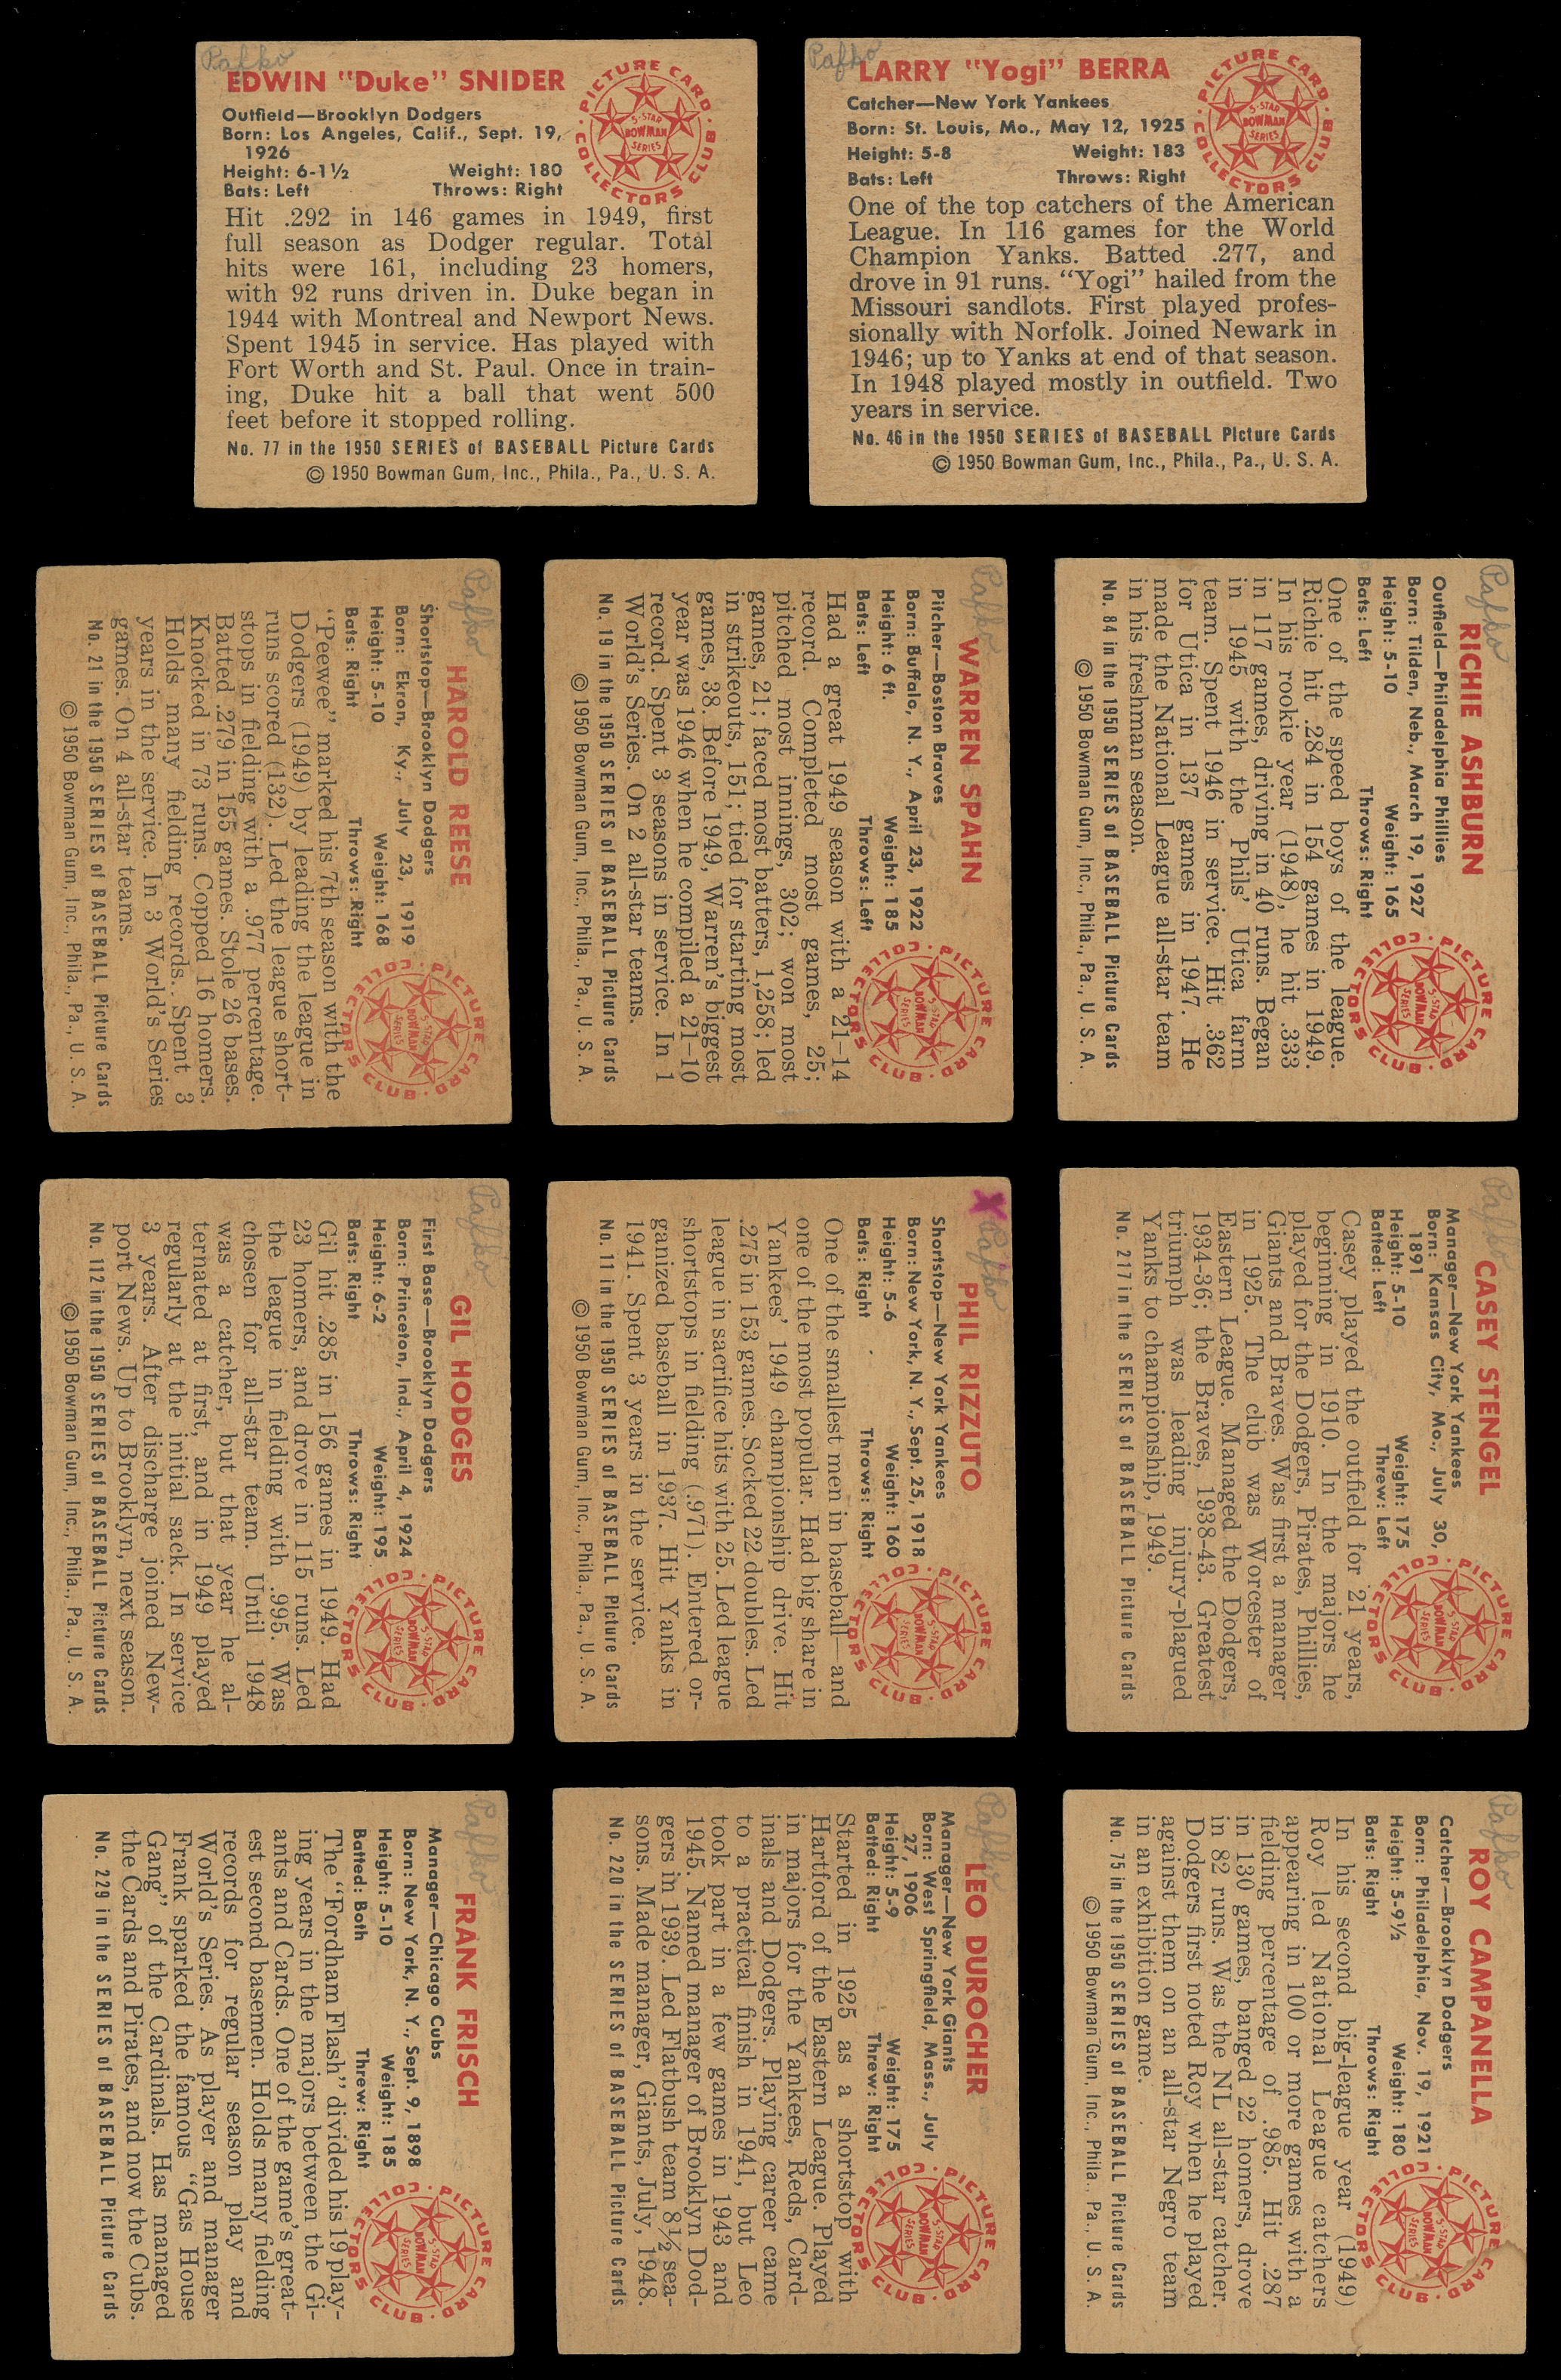 Pafko
EDWIN "Duke" SNIDER
Outfield—Brooklyn Dodgers
Born: Los Angeles, Calif., Sept. 19,
1926
Height: 6-1½ Weight: 180
Bats: Left Throws: Right
PICTURE CARD COLLECTORS CLUB
5-STAR
BOWMAN
SERIES
Hit .292 in 146 games in 1949, first
full season as Dodger regular. Total
hits were 161, including 23 homers,
with 92 runs driven in. Duke began in
1944 with Montreal and Newport News.
Spent 1945 in service. Has played with
Fort Worth and St. Paul. Once in train-
ing, Duke hit a ball that went 500
feet before it stopped rolling.
No. 77 in the 1950 SERIES of BASEBALL Picture Cards
© 1950 Bowman Gum, Inc., Phila., Pa., U. S. A.
Pafko
LARRY "Yogi" BERRA
Catcher—New York Yankees
Born: St. Louis, Mo., May 12, 1925
Height: 5-8 Weight: 183
Bats: Left Throws: Right
PICTURE CARD COLLECTORS CLUB
5-STAR
BOWMAN
SERIES
One of the top catchers of the American
League. In 116 games for the World
Champion Yanks. Batted .277, and
drove in 91 runs. "Yogi" hailed from the
Missouri sandlots. First played profes-
sionally with Norfolk. Joined Newark in
1946; up to Yanks at end of that season.
In 1948 played mostly in outfield. Two
years in service.
No. 46 in the 1950 SERIES of BASEBALL Picture Cards
© 1950 Bowman Gum, Inc., Phila., Pa., U. S. A.
Pafko
HAROLD REESE
Shortstop—Brooklyn Dodgers
Born: Ekron, Ky., July 23, 1919
Height: 5-10 Weight: 168
Bats: Right Throws: Right
PICTURE CARD COLLECTORS CLUB
5-STAR
BOWMAN
SERIES
"Peewee" marked his 7th season with the
Dodgers (1949) by leading the league in
runs scored (132). Led the league short-
stops in fielding with a .977 percentage.
Batted .279 in 155 games. Stole 26 bases.
Knocked in 73 runs. Copped 16 homers.
Holds many fielding records. Spent 3
years in the service. In 3 World's Series
games. On 4 all-star teams.
No. 21 in the 1950 SERIES of BASEBALL Picture Cards
© 1950 Bowman Gum, Inc., Phila., Pa., U. S. A.
Pafko
WARREN SPAHN
Pitcher—Boston Braves
Born: Buffalo, N. Y., April 23, 1922
Height: 6 ft. Weight: 185
Bats: Left Throws: Left
PICTURE CARD COLLECTORS CLUB
5-STAR
BOWMAN
SERIES
Had a great 1949 season with a 21-14
record. Completed most games, 25;
pitched most innings, 302; won most
games, 21; faced most batters, 1,258; led
in strikeouts, 151; tied for starting most
games, 38. Before 1949, Warren's biggest
year was 1946 when he compiled a 21-10
record. Spent 3 seasons in service. In 1
World's Series. On 2 all-star teams.
No. 19 in the 1950 SERIES of BASEBALL Picture Cards
© 1950 Bowman Gum, Inc., Phila., Pa., U. S. A.
Pafko
RICHIE ASHBURN
Outfield—Philadelphia Phillies
Born: Tilden, Neb., March 19, 1927
Height: 5-10 Weight: 165
Bats: Left Throws: Right
PICTURE CARD COLLECTORS CLUB
5-STAR
BOWMAN
SERIES
One of the speed boys of the league.
Richie hit .284 in 154 games in 1949.
In his rookie year (1948), he hit .333
in 117 games, driving in 40 runs. Began
in 1945 with the Phils' Utica farm
team. Spent 1946 in service. Hit .362
for Utica in 137 games in 1947. He
made the National League all-star team
in his freshman season.
No. 84 in the 1950 SERIES of BASEBALL Picture Cards
© 1950 Bowman Gum, Inc., Phila., Pa., U. S. A.
Pafko
GIL HODGES
First Base—Brooklyn Dodgers
Born: Princeton, Ind., April 4, 1924
Height: 6-2 Weight: 195
Bats: Right Throws: Right
PICTURE CARD COLLECTORS CLUB
5-STAR
BOWMAN
SERIES
Gil hit .285 in 156 games in 1949. Had
23 homers, and drove in 115 runs. Led
the league in fielding with .995. Was
chosen for all-star team. Until 1948
was a catcher, but that year he al-
ternated at first, and in 1949 played
regularly at the initial sack. In service
3 years. After discharge joined New-
port News. Up to Brooklyn, next season.
No. 112 in the 1950 SERIES of BASEBALL Picture Cards
© 1950 Bowman Gum, Inc., Phila., Pa., U. S. A.
X Pafko
PHIL RIZZUTO
Shortstop—New York Yankees
Born: New York, N. Y., Sept. 25, 1918
Height: 5-6 Weight: 160
Bats: Right Throws: Right
PICTURE CARD COLLECTORS CLUB
5-STAR
BOWMAN
SERIES
One of the smallest men in baseball—and
one of the most popular. Had big share in
Yankees' 1949 championship drive. Hit
.275 in 153 games. Socked 22 doubles. Led
league in sacrifice hits with 25. Led league
shortstops in fielding (.971). Entered or-
ganized baseball in 1937. Hit Yanks in
1941. Spent 3 years in the service.
No. 11 in the 1950 SERIES of BASEBALL Picture Cards
© 1950 Bowman Gum, Inc., Phila., Pa., U. S. A.
Pafko
CASEY STENGEL
Manager—New York Yankees
Born: Kansas City, Mo., July 30,
1891
Height: 5-10 Weight: 175
Batted: Left Threw: Left
PICTURE CARD COLLECTORS CLUB
5-STAR
BOWMAN
SERIES
Casey played the outfield for 21 years,
beginning in 1910. In the majors he
played for the Dodgers, Pirates, Phillies,
Giants and Braves. Was first a manager
in 1925. The club was Worcester of
Eastern League. Managed the Dodgers,
1934-36; the Braves, 1938-43. Greatest
triumph was leading injury-plagued
Yanks to championship, 1949.
No. 217 in the SERIES of BASEBALL Picture Cards
Pafko
FRANK FRISCH
Manager—Chicago Cubs
Born: New York, N. Y., Sept. 9, 1898
Height: 5-10 Weight: 185
Batted: Both Threw: Right
PICTURE CARD COLLECTORS CLUB
5-STAR
BOWMAN
SERIES
The "Fordham Flash" divided his 19 play-
ing years in the majors between the Gi-
ants and Cards. One of the game's great-
est second basemen. Holds many fielding
records for regular season play and
World's Series. As player and manager
Frank sparked the famous "Gas House
Gang" of the Cardinals. Has managed
the Cards and Pirates, and now the Cubs.
No. 229 in the SERIES of BASEBALL Picture Cards
Pafko
LEO DUROCHER
Manager—New York Giants
Born: West Springfield, Mass., July
27, 1906
Height: 5-9 Weight: 175
Batted: Right Threw: Right
PICTURE CARD COLLECTORS CLUB
5-STAR
BOWMAN
SERIES
Started in 1925 as a shortstop with
Hartford of the Eastern League. Played
in majors for the Yankees, Reds, Card-
inals and Dodgers. Playing career came
to a practical finish in 1941, but Leo
took part in a few games in 1943 and
1945. Named manager of Brooklyn Dod-
gers in 1939. Led Flatbush team 8½ sea-
sons. Made manager, Giants, July, 1948.
No. 220 in the SERIES of BASEBALL Picture Cards
Pafko
ROY CAMPANELLA
Catcher—Brooklyn Dodgers
Born: Philadelphia, Nov. 19, 1921
Height: 5-9½ Weight: 180
Bats: Right Throws: Right
PICTURE CARD COLLECTORS CLUB
5-STAR
BOWMAN
SERIES
In his second big-league year (1949)
Roy led National League catchers
appearing in 100 or more games with a
fielding percentage of .985. Hit .287
in 130 games, banged 22 homers, drove
in 82 runs. Was the NL all-star catcher.
Dodgers first noted Roy when he played
against them on an all-star Negro team
in an exhibition game.
No. 75 in the 1950 SERIES of BASEBALL Picture Cards
© 1950 Bowman Gum, Inc., Phila., Pa., U. S. A.